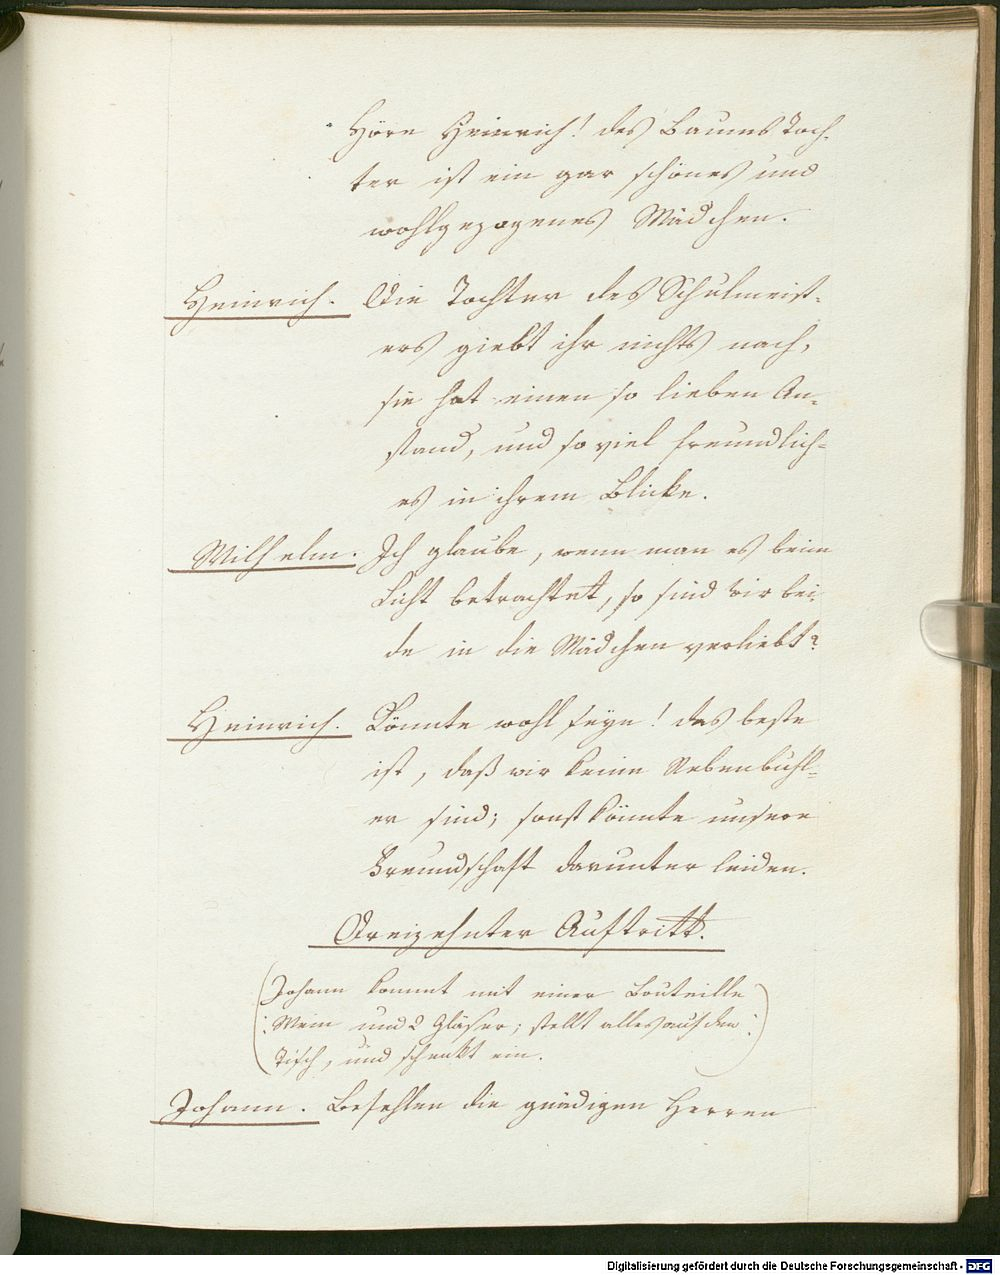 Höre Heinrich! des Baums Toch-
ter ist ein gar schönes und
wohlgezogenes Mädchen.
Heinrich. Die Tochter des Schulmeist-
ers giebt ihr nichts nach,
sie hat einen so lieben An-
stand, und so viel freundlich-
es in ihrem Blicke.
Wilhelm. Ich glaube, wenn man es beim
Licht betrachtet, so sind wir bei-
de in die Mädchen verliebt?
Heinrich. Könnte wohl seyn! das beste
ist, daß wir keine Nebenbuhl-
er sind; sonst könnte unsere
Freundschaft darunter leiden.
Dreizehnter Auftritt.
(Johann kommt mit einer Bouteille
: Wein und 2 Gläser; stellt alles auf den :
Tisch, und schenkt ein.)
Johann. Befehlen die gnädigen Herren
Digitalisierung gefördert durch die Deutsche Forschungsgemeinschaft - DFG